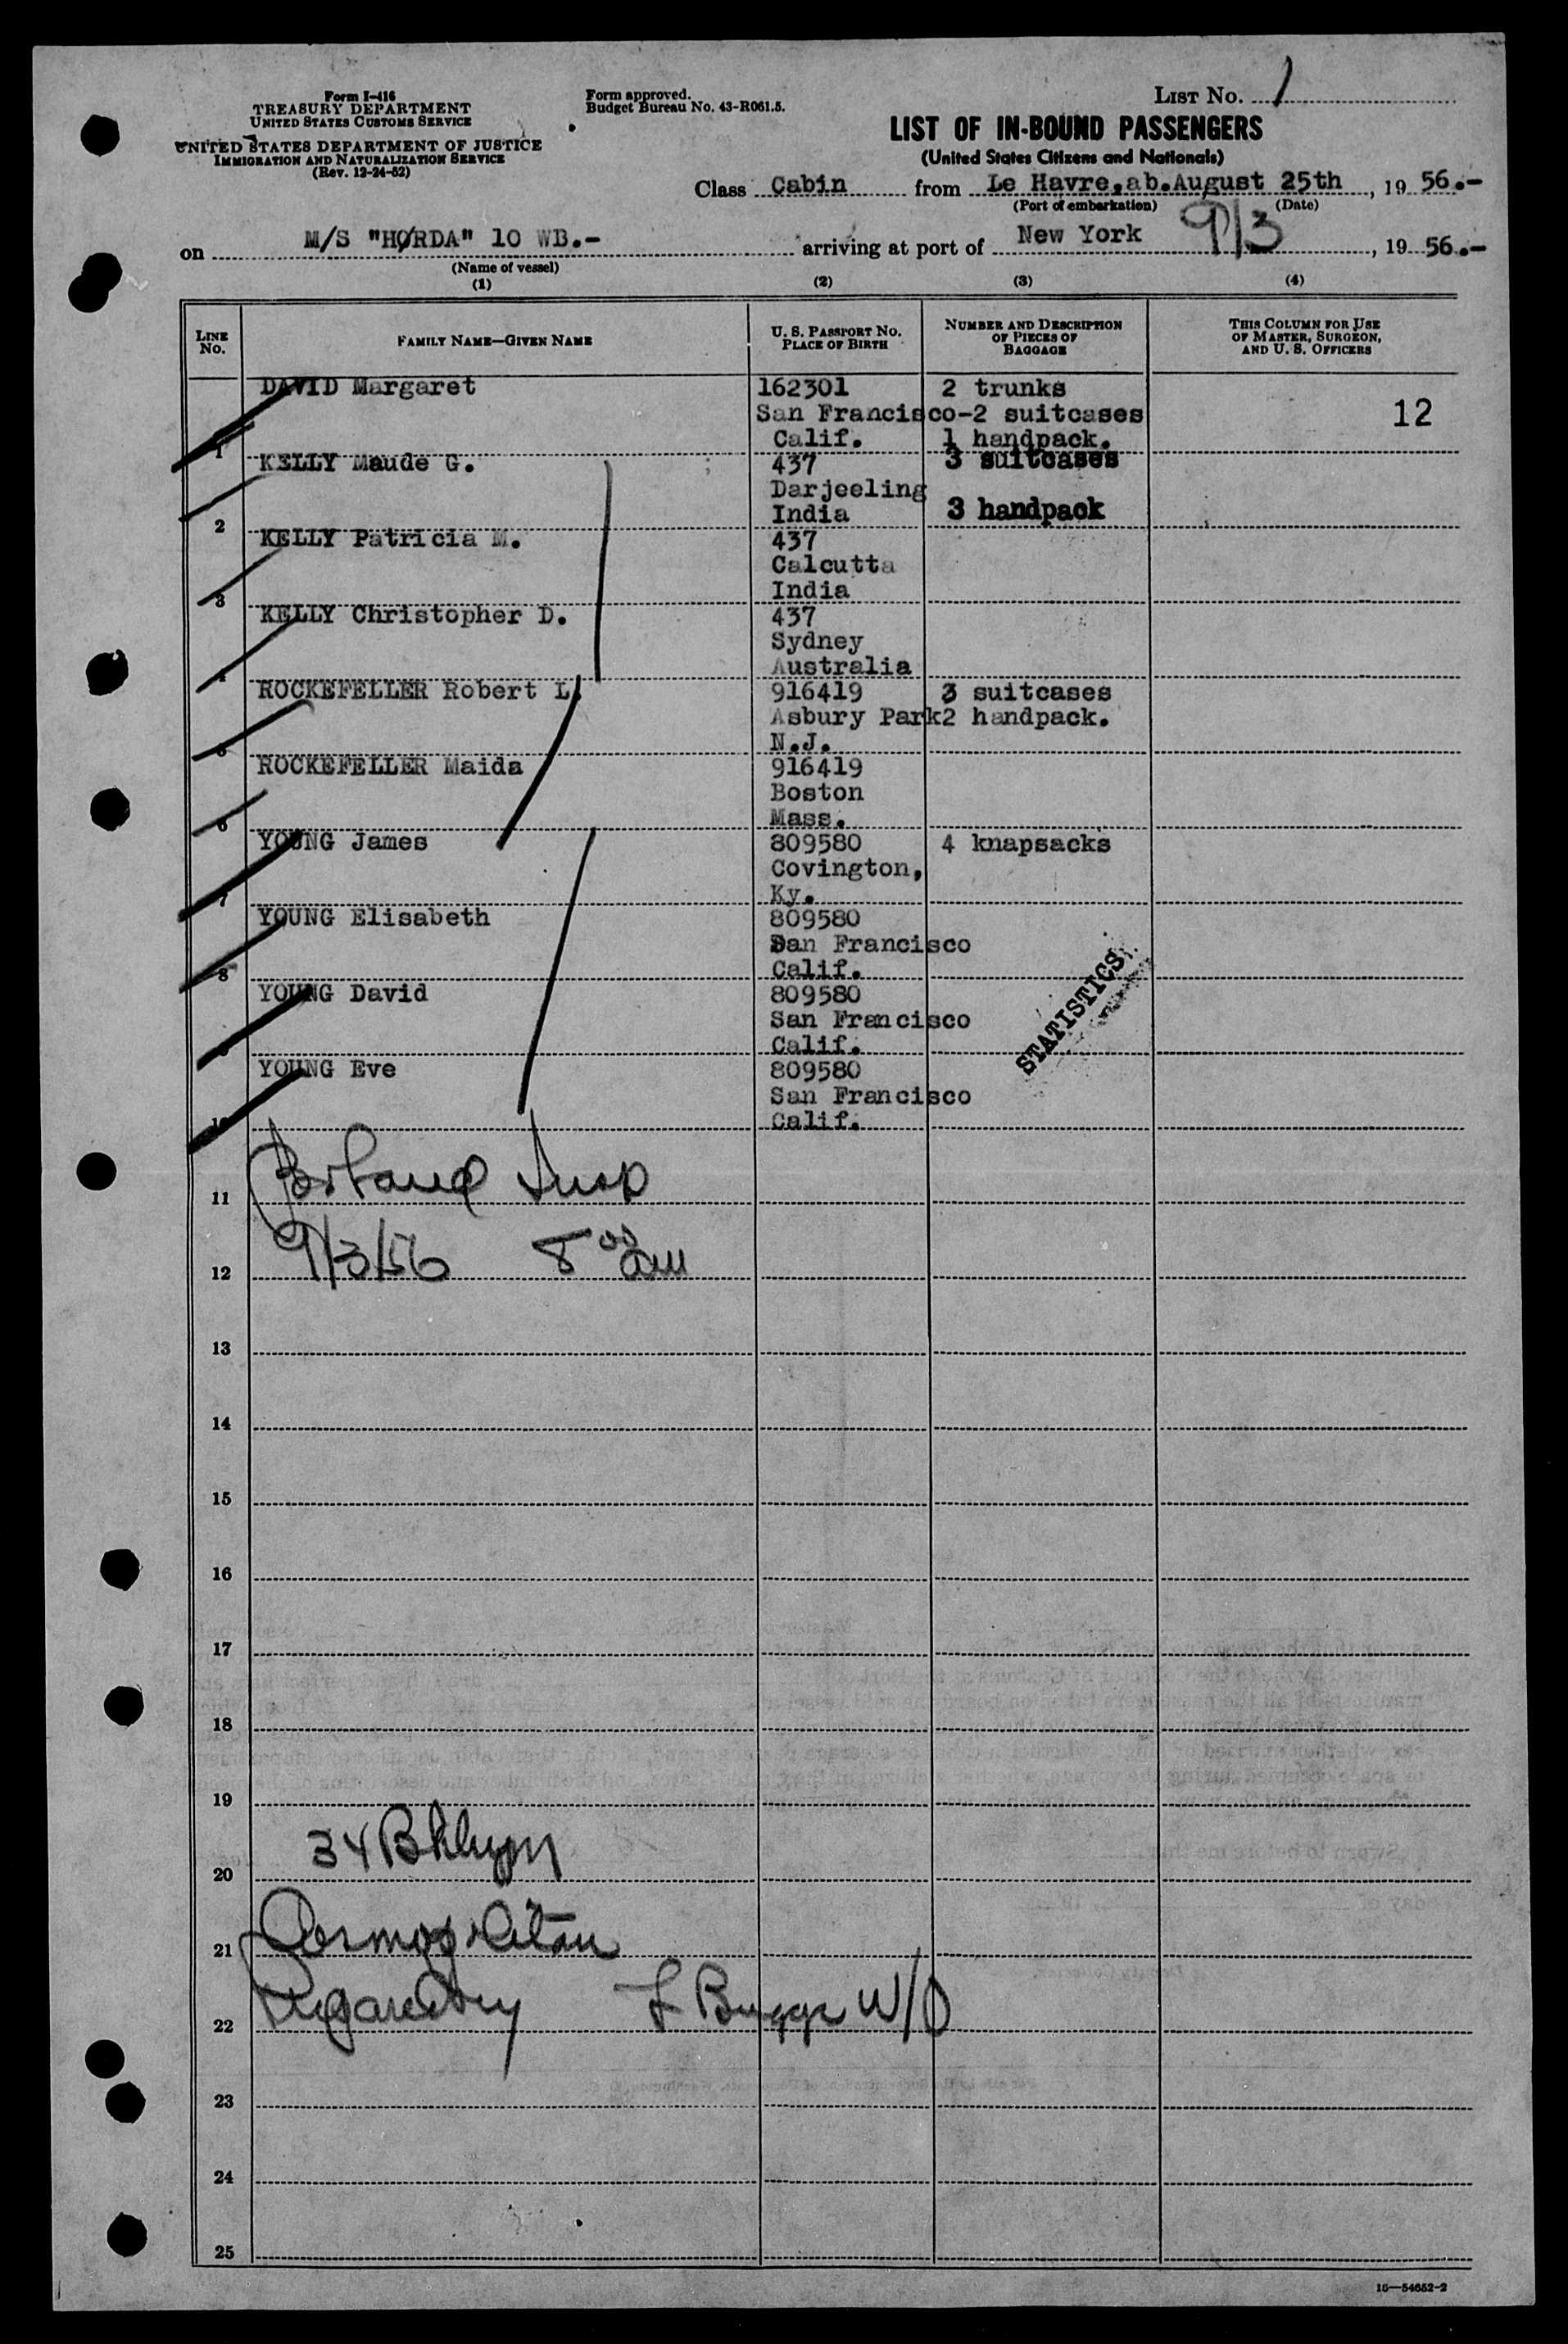 Form I-416
TREASURY DEPARTMENT
UNITED STATES CUSTOMS SERVICE
UNITED STATES DEPARTMENT OF JUSTICE
IMMIGRATION AND NATURALIZATION SERVICE
(Rev. 12-24-52)
Form approved.
Budget Bureau No. 43-R061.5.
LIST No. 1
LIST OF IN-BOUND PASSENGERS
(United States Citizens and Nationals)
Class Cabin from Le Havre,ab.August 25th, 19 56.-
(Port of embarkation) (Date)
on M/S "HØRDA" 10 WB.- arriving at port of New York 9/3, 19 56.-
(Name of vessel)
(1) (2) (3) (4)
LINE No. FAMILY NAME—GIVEN NAME U. S. PASSPORT No. PLACE OF BIRTH NUMBER AND DESCRIPTION OF PIECES OF BAGGAGE THIS COLUMN FOR USE OF MASTER, SURGEON, AND U. S. OFFICERS
DAVID Margaret 162301 2 trunks
San Francisco-2 suitcases 12
1 Calif. 1 handpack.
KELLY Maude G. 437 3 suitcases
Darjeeling
2 India 3 handpack
KELLY Patricia M. 437
Calcutta
3 India
KELLY Christopher D. 437
Sydney
4 Australia
ROCKEFELLER Robert L. 916419 3 suitcases
Asbury Park2 handpack.
5 N.J.
ROCKEFELLER Maida 916419
Boston
6 Mass.
YOUNG James 809580 4 knapsacks
Covington,
7 Ky.
YOUNG Elisabeth 809580
San Francisco
8 Calif.
YOUNG David 809580
San Francisco
9 Calif.
YOUNG Eve 809580
San Francisco
10 Calif.
STATISTICS
11 Insp
12 9/3/56 8 00 am
13
14
15
16
17
18
19
20 34 Bklyn
21 Cosmopolitan
22 L Buggs W/O
23
24
25
16—54652-2